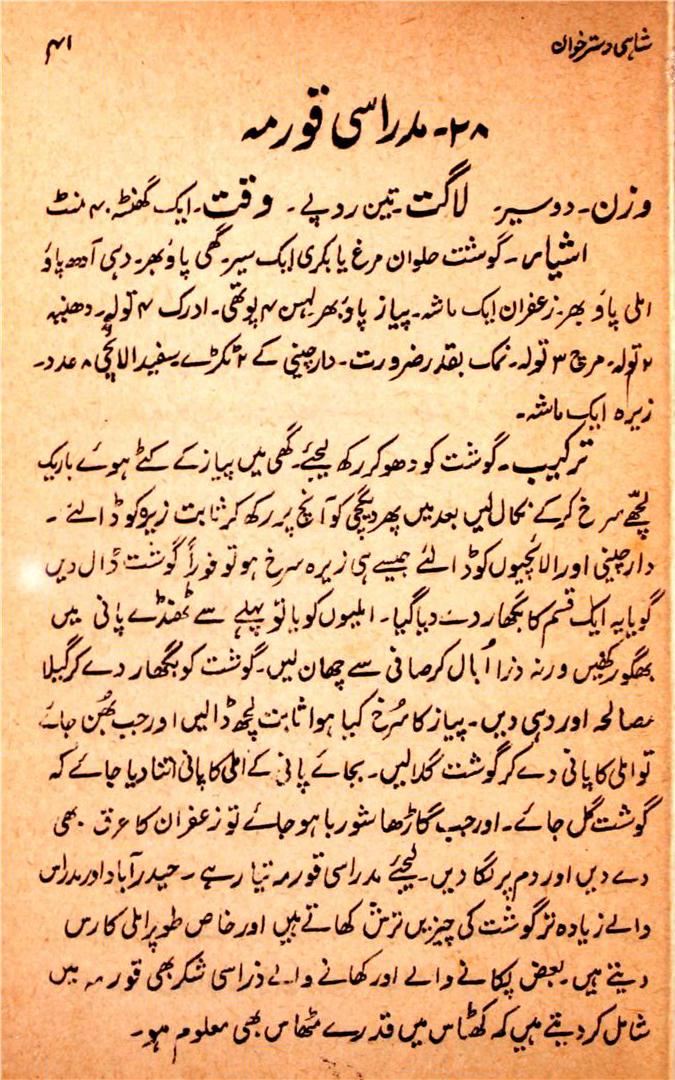 شاہی دسترخوان
۴۱
۲۸۔ مدراسی قورمہ
وزن۔ دو سیر۔ لاگت۔ تین روپے۔ وقت۔ ایک گھنٹہ ۴۰ منٹ
اشیاء۔ گوشت حلوان مرغ یا بکری ایک سیر۔ گھی پاؤ بھر۔ دہی آدھ پاؤ
املی پاؤ بھر۔ زعفران ایک ماشہ۔ پیاز پاؤ بھر لہسن ۴ پوتھی۔ ادرک ۴ تولہ۔ دھنیہ
۲ تولہ۔ مرچ ۳ تولہ۔ نمک بقدر ضرورت۔ دارچینی کے ۲ ٹکڑے۔ سفید الائچی ۸ عدد۔
زیرہ ایک ماشہ۔
ترکیب۔ گوشت کو دھو کر رکھ لیجئے۔ گھی میں پیاز کے کٹے ہوئے باریک
لچھے سرخ کر کے نکال لیں بعد میں پھر دیگچی کو آنچ پر رکھ کر ثابت زیرہ کو ڈالئے۔
دارچینی اور الائچیوں کو ڈالئے جیسے ہی زیرہ سرخ ہو تو فوراً گوشت ڈال دیں
گویا یہ ایک قسم کا بگھار دے دیا گیا۔ املیوں کو یا تو پہلے سے ٹھنڈے پانی میں
بھگو رکھیں ورنہ ذرا اُبال کر صافی سے چھان لیں۔ گوشت کو بگھار دے کر گیلا
مصالحہ اور دہی دیں۔ پیاز کا سُرخ کیا ہوا ثابت لچھ ڈالیں اور جب بھُن جائے
تو املی کا پانی دے کر گوشت گلالیں۔ بجائے پانی کے املی کا پانی اتنا دیا جائے کہ
گوشت گل جائے۔ اور جب گاڑھا شوربا ہو جائے تو زعفران کا عرق بھی
دے دیں اور دم پر لگا دیں۔ لیجئے مدراسی قورمہ تیار ہے۔ حیدرآباد اور مدراس
والے زیادہ تر گوشت کی چیزیں ترش کھاتے ہیں اور خاص طور پر املی کا رس
دیتے ہیں۔ بعض پکانے والے اور کھانے والے ذرا سی شکر بھی قورمہ میں
شامل کر دیتے ہیں کہ کھٹاس میں قدرے مٹھاس بھی معلوم ہو۔